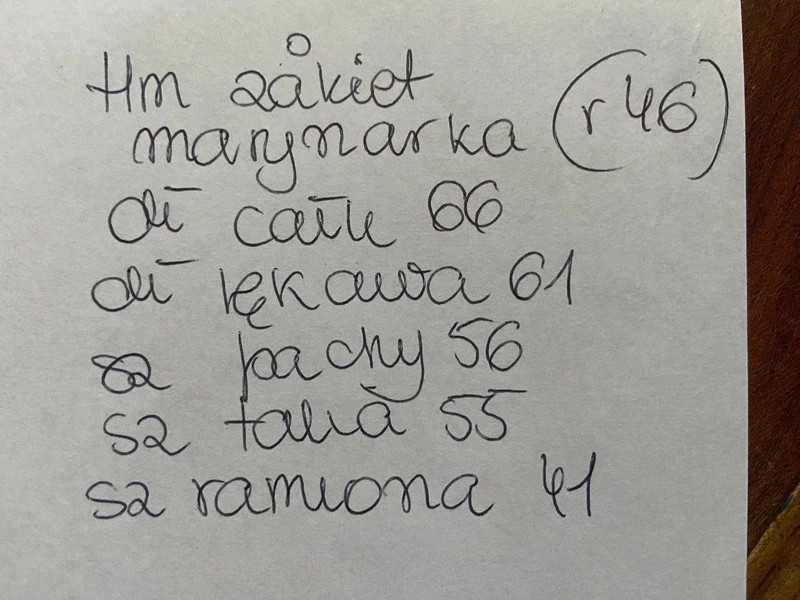 Hm żakiet
marynarka (r 46)
dł całk 66
dł rękawa 61
sz pachy 56
sz talia 55
sz ramiona 41